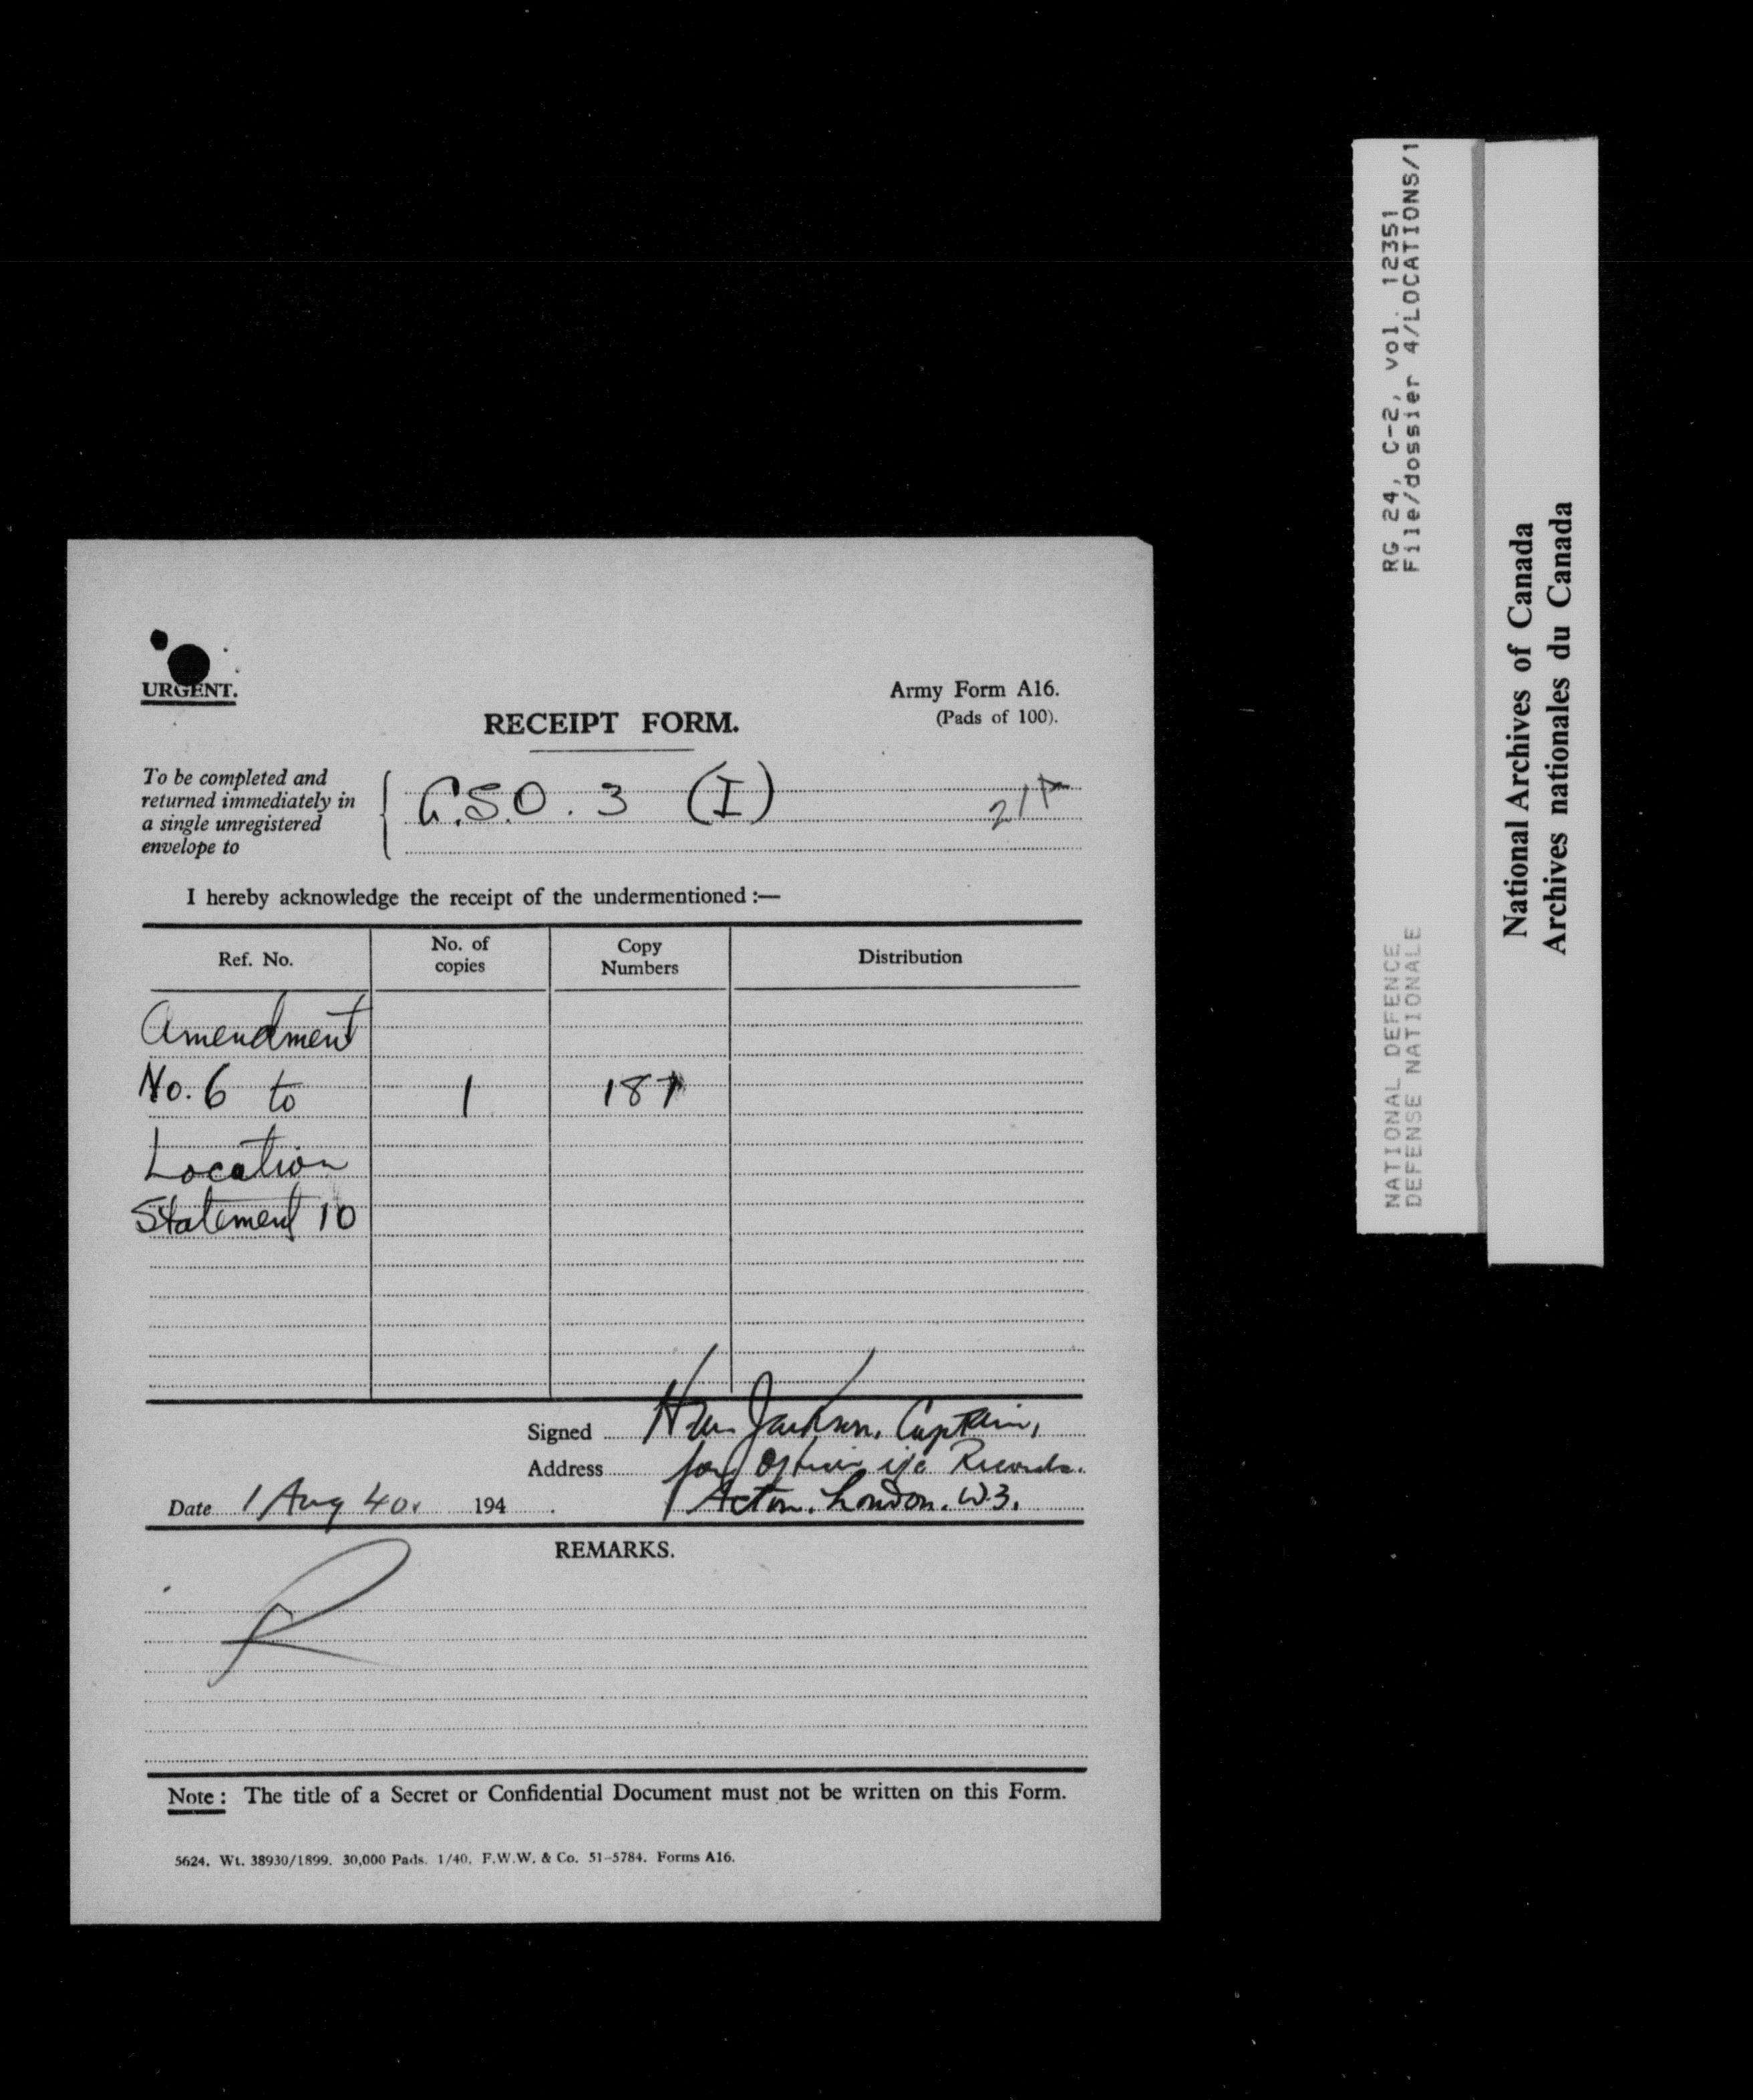 URGENT.
Army Form A16.
(Pads of 100).
RECEIPT FORM.
To be completed and
returned immediately in
a single unregistered
envelope to
G.S.O. 3 (I)
I hereby acknowledge the receipt of the undermentioned :—
Ref. No. No. of copies Copy Numbers Distribution
Amendment
No. 6 to 1 187
Location
Statement 10
Signed Jackson, Captain,
Address for i/c Records.
Acton. London. W.3.
Date 1 Aug 40. 194 .
REMARKS.
R
Note : The title of a Secret or Confidential Document must not be written on this Form.
5624. Wt. 38930/1899. 30,000 Pads. 1/40. F.W.W. & Co. 51-5784. Forms A16.
RG 24, C-2, vol. 12351
File/dossier 4/LOCATIONS/1
NATIONAL DEFENCE
DEFENSE NATIONALE
National Archives of Canada
Archives nationales du Canada